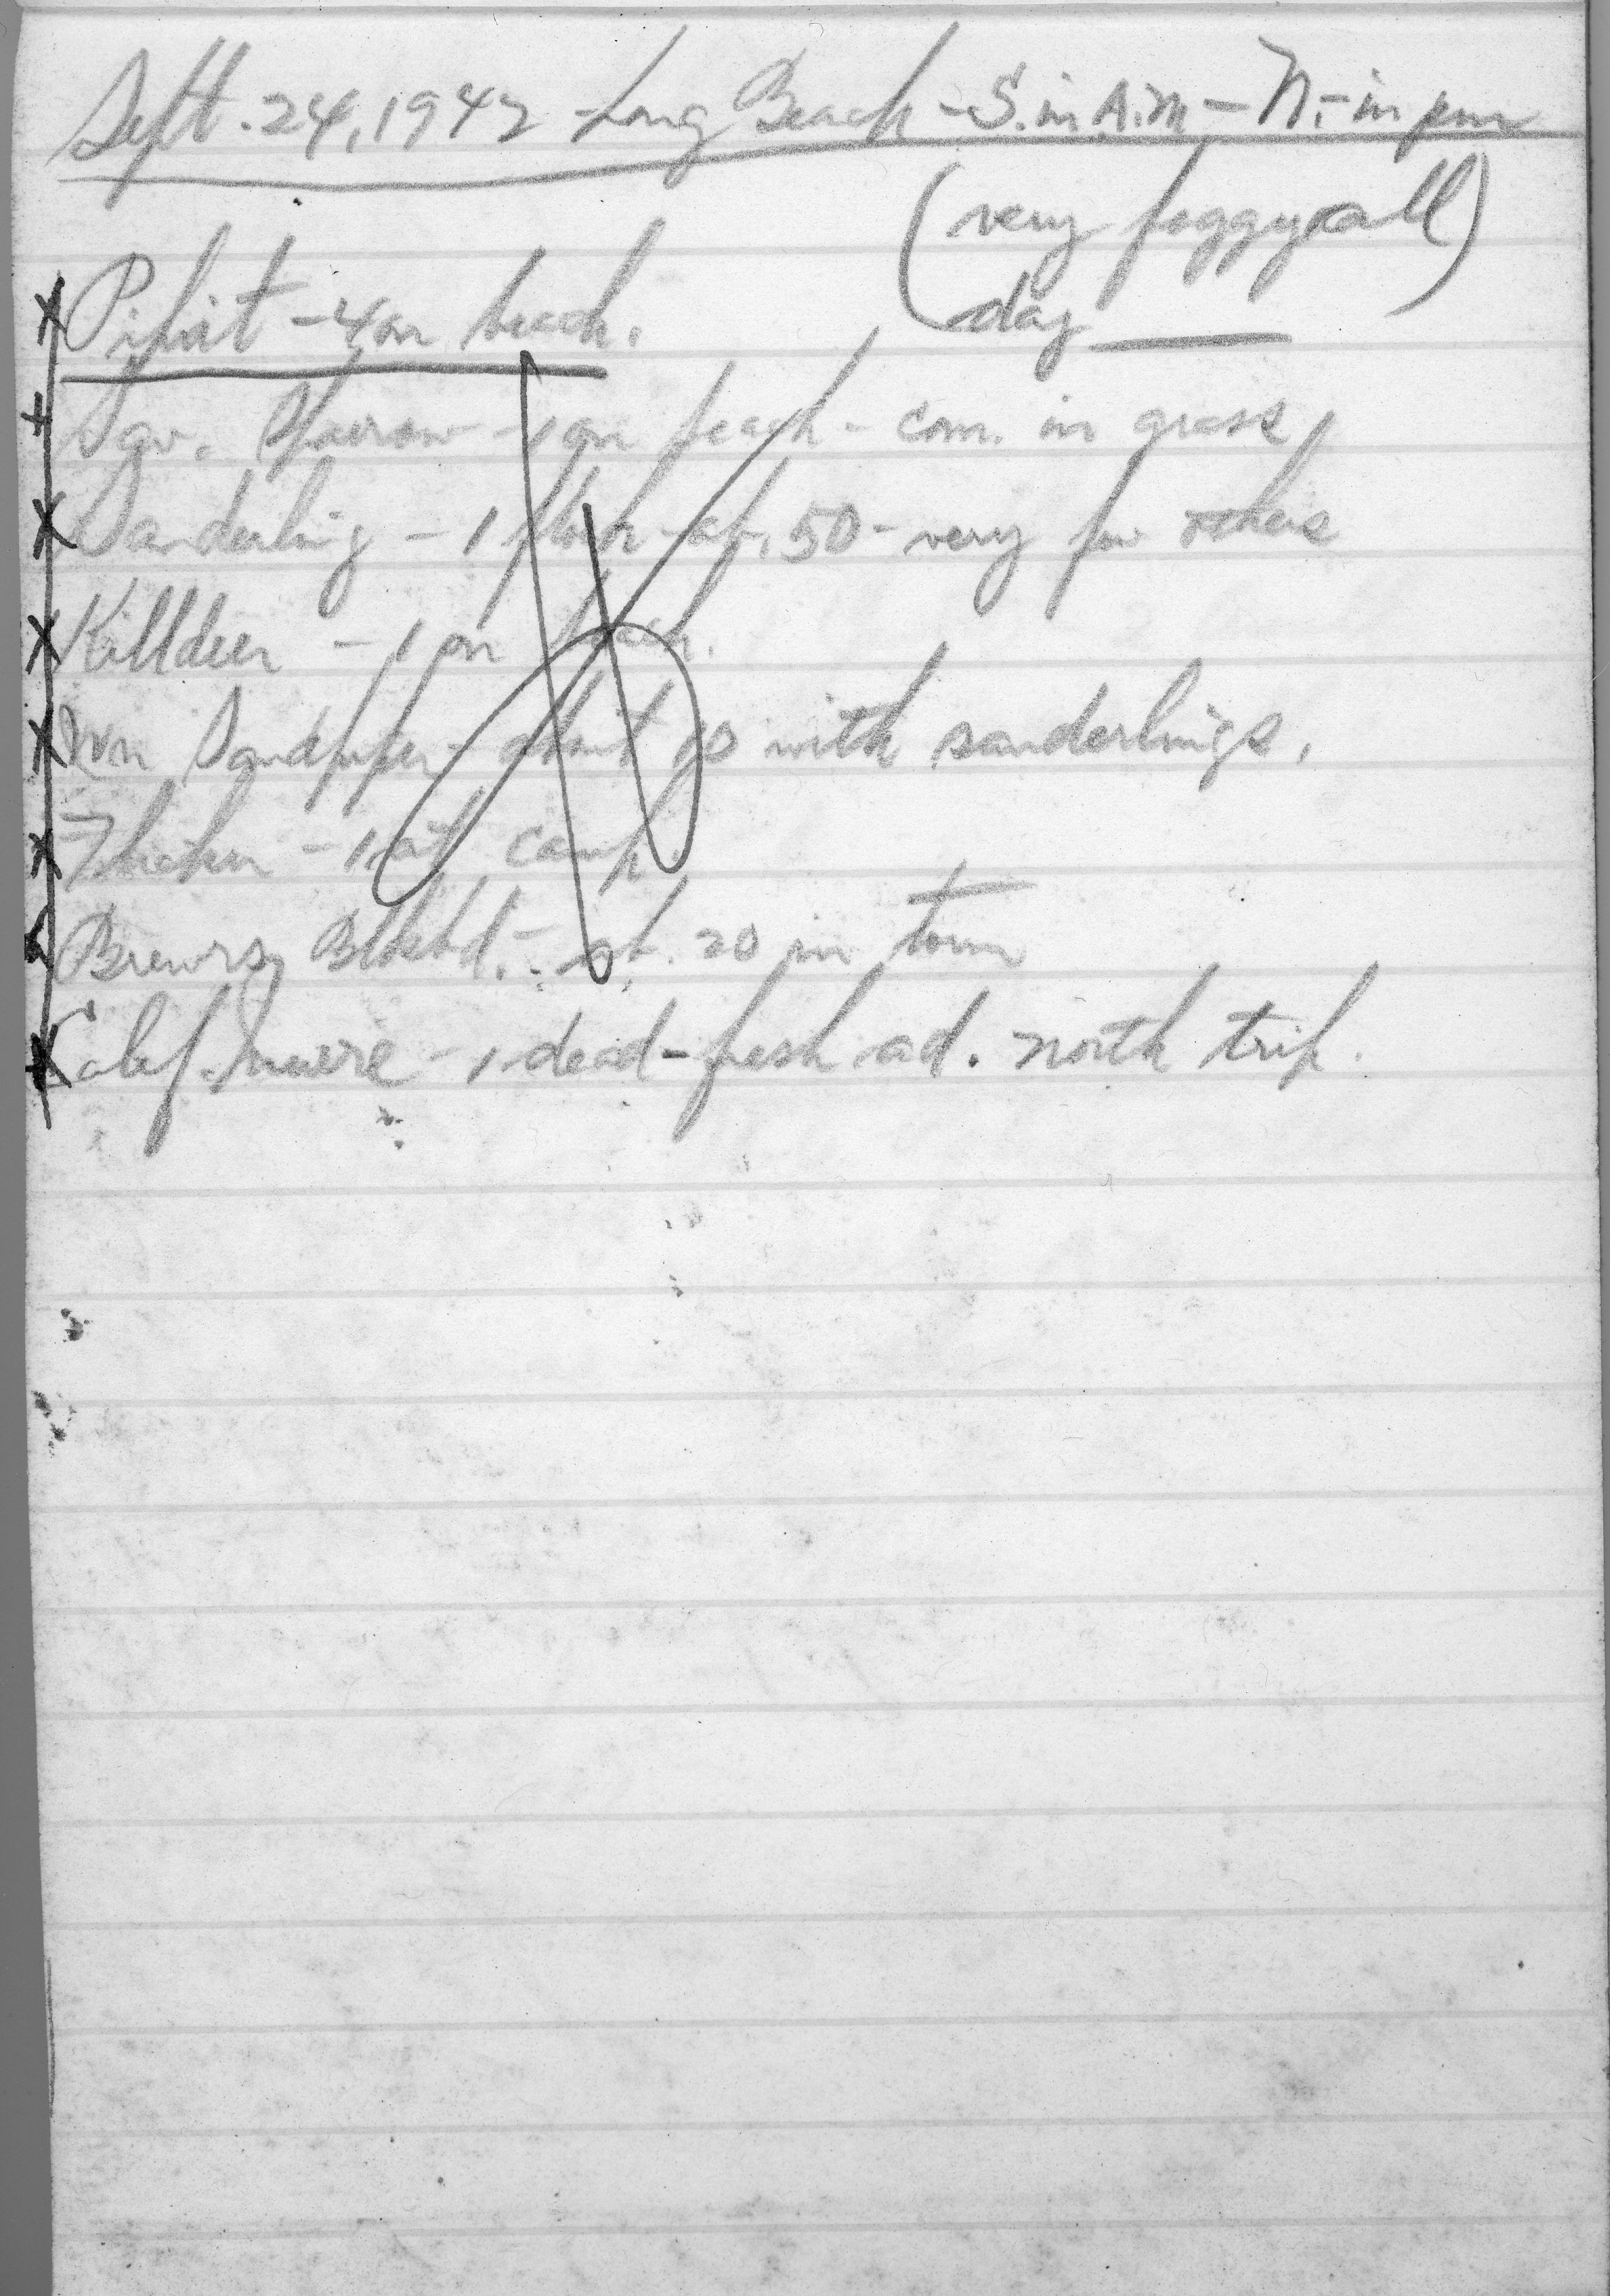 Sept. 24, 1947 - Long Beach - S. in A.M - N. - in pm
(very foggy all
day)
Pipit - 4 on beach.
Sav. Sparrow - 1 on beach - com. in grass
Sanderling - 1 flock - ab. 50 - very few others
Killdeer - 1 on beach.
Wn Sandpiper - about 10 with sanderlings.
Flicker - 1 at camp.
Brewrs Blkbd. - ab. 20 in town
Calif. Murre - 1 dead - fresh ad. north trip.